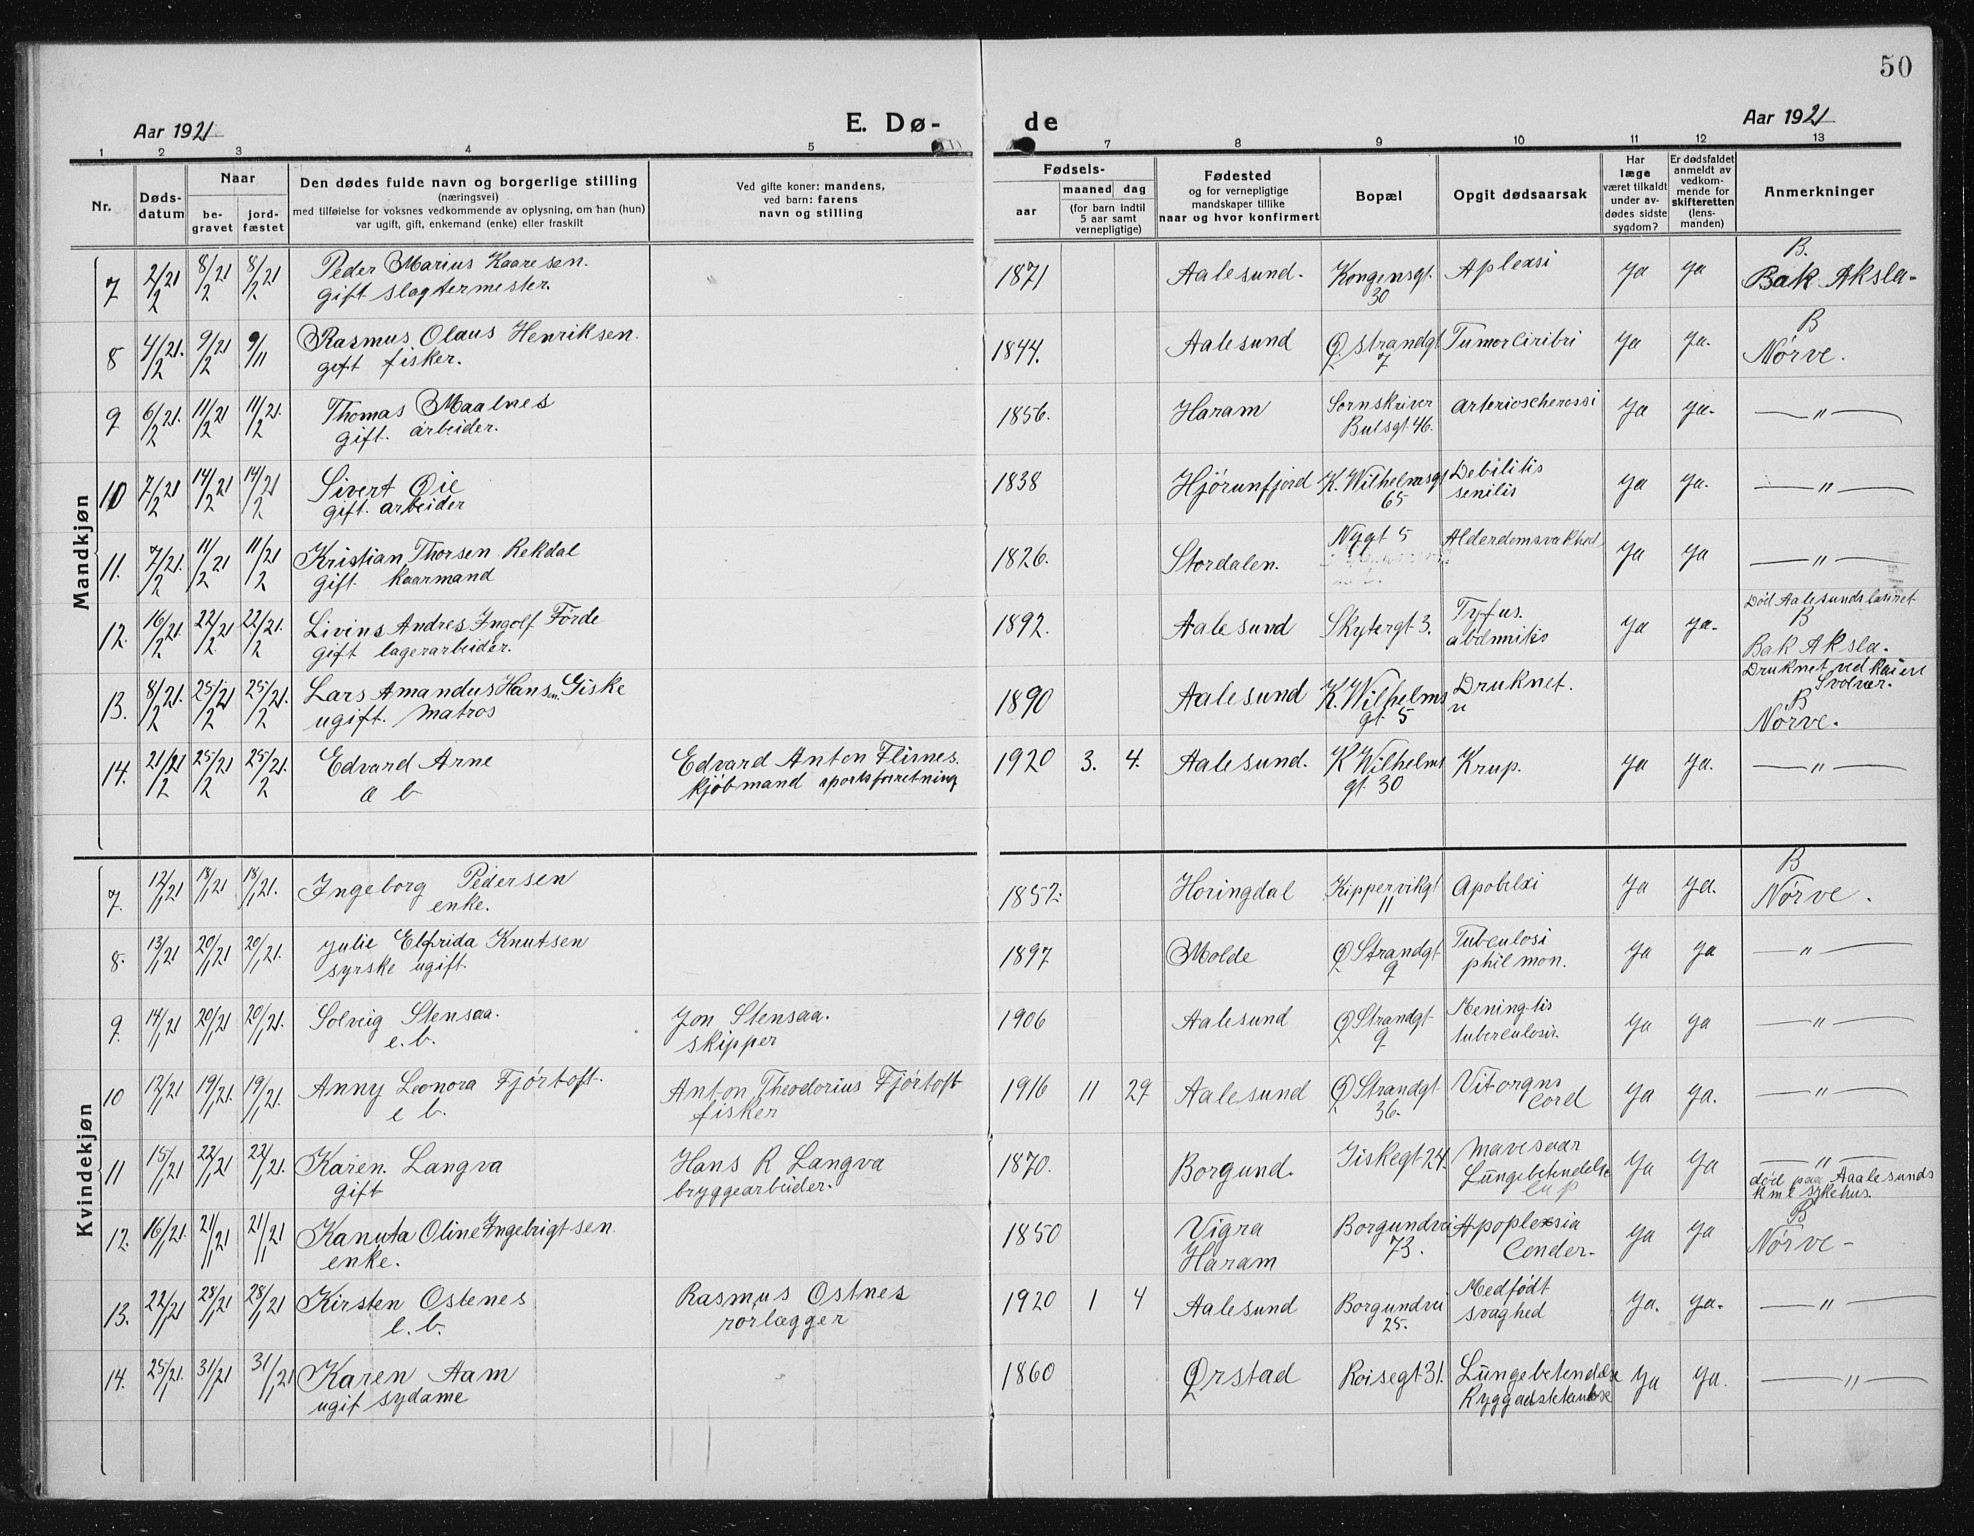 50
Aar 1921
E. Dø-
de
Aar 1921
1 2 3 4 5 7 8 9 10 11 12 13
Nr.
Døds-
datum
Naar
be-
gravet
jord-
fæstet
Den dødes fulde navn og borgerlige stilling
(næringsvei)
med tilføielse for voksnes vedkommende av oplysning, om han (hun)
var ugift, gift, enkemand (enke) eller fraskilt
Ved gifte koner: mandens,
ved barn: farens
navn og stilling
Fødsels-
aar
maaned dag
(for barn indtil
5 aar samt
vernepligtige)
Fødested
og for vernepligtige
mandskaper tillike
naar og hvor konfirmert
Bopæl
Opgit dødsaarsak
Har
læge
været tilkaldt
under av-
dødes sidste
sygdom?
Er dødsfaldet
anmeldt av
vedkom-
mende for
skifteretten
(lens-
manden)
Anmerkninger
Mandkjøn
7 2/2 21 8/2 21 8/2 21 Peder Marius Kaaresen.
gift slagtermester.
1871 Aalesund. Kongensgt.
30
Aplexsi Ja Ja B.
Bak Aksla.
8 4/2 21. 9/2 21 9/11 Rasmus Olaus Henriksen.
gift fisker.
1844. Aalesund Ø. Strandgt
7
Tumor Ciribri Ja Ja. B
Nørve.
9 6/2 21. 11/2 21 11/2 21. Thomas Maalnes
gift. arbeider.
1856. Haram Sornskriver
Bulsgt. 46.
Arterioscherossi Ja Ja. —〃—
10 7/2 21 14/2 21 14/2 21 Sivert Øie
gift. arbeider
1838 Hjørunfjord K. Wilhelmsgt
65
Debilitis
senilis
Ja Ja. —〃—
11. 7/2 21. 11/2 21 11/2 21 Kristian Thorsen Rekdal
gift. kaarmand
1826. Stordalen. Nygt 5 Alderdomsvakhed Ja Ja —〃—
12. 16/2 21. 22/2 21 22/2 21. Livius Andres Ingolf Førde
gift lagerarbeider.
1892. Aalesund Skytergt 3. Tyfus.
abdmnitis
Ja Ja. Død Aalesunds lasaret
B
Bak Aksla.
13. 8/2 21. 25/2 21 25/2 21. Lars Amandus Hansen Giske
ugift. matros
1890 Aalesund K. Wilhelms
gt. 5
Druknet. Druknet ved kaien
Svolvær.
B
Nørve.
14. 21/2 21 25/2 21 25/2 21. Edvard Arne
a b
Edvard Anton Flisnes.
kjøbmand sportsforretning
1920 3. 4. Aalesund. K Wilhelms
gt. 30
Krup. Ja Ja. —〃—
Kvindekjøn
7. 12/1 21 18/1 21 18/1 21. Ingeborg Pedersen
enke.
1852. Horingdal Kippervikgt
11
Apobelxi Ja Ja. B
Nørve.
8. 13/1 21 20/1 21 20/1 21. Julie Elfrida Knutsen
syrske ugift.
1897 Molde Ø Strandgt.
9
Tubculosi
phil mon.
Ja Ja —〃—
9. 14/1 21 20/1 21 20/1 21. Solveig Stensaa.
e. b.
Jon Stensaa.
skipper
1906 Aalesund Ø Strandgt
9
Mening-tis
tuberculosis.
Ja Ja —〃—
10 12/1 21 19/1 21. 19/1 21. Anny Leonora Fjørtoft.
e b.
Anton Theodorius Fjørtoft
fisker
1916 11 29 Aalesund Ø Strandgt
36.
Vitorgns
Cord
Ja Ja. —〃—
11 15/1 21 22/1 21 22/1 21. Karen. Langva
gift
Hans R Langva
bryggearbeider.
1870. Borgund. Giskegt 24. Mavesaar
Lungebetendelse
Ja Ja —〃—
død paa Aaalesunds
kml sykehus.
12. 16/1 21. 21/1 21 21/1 21 Kanuta Oline Ingebrigtsen.
enke.
1850 Vigra
Haram
Borgundvei
73.
Apoplexsia
Conder-
Ja Ja B
Nørve-
13. 22/1 21 28/1 21 28/1 21 Kirsten Ostenes
e. b.
Rasmus Ostnes
rørlægger
1920 1 4 Aalesund Borgundvei
25.
Medfødt
svaghed
Ja. Ja. —〃—
14. 25/1 21. 31/1 21 31/1 21 Karen Aam
ugif sydame
1860 Ørstad Roisegt 31. Lungebetendelse
Ja Ja. —〃—